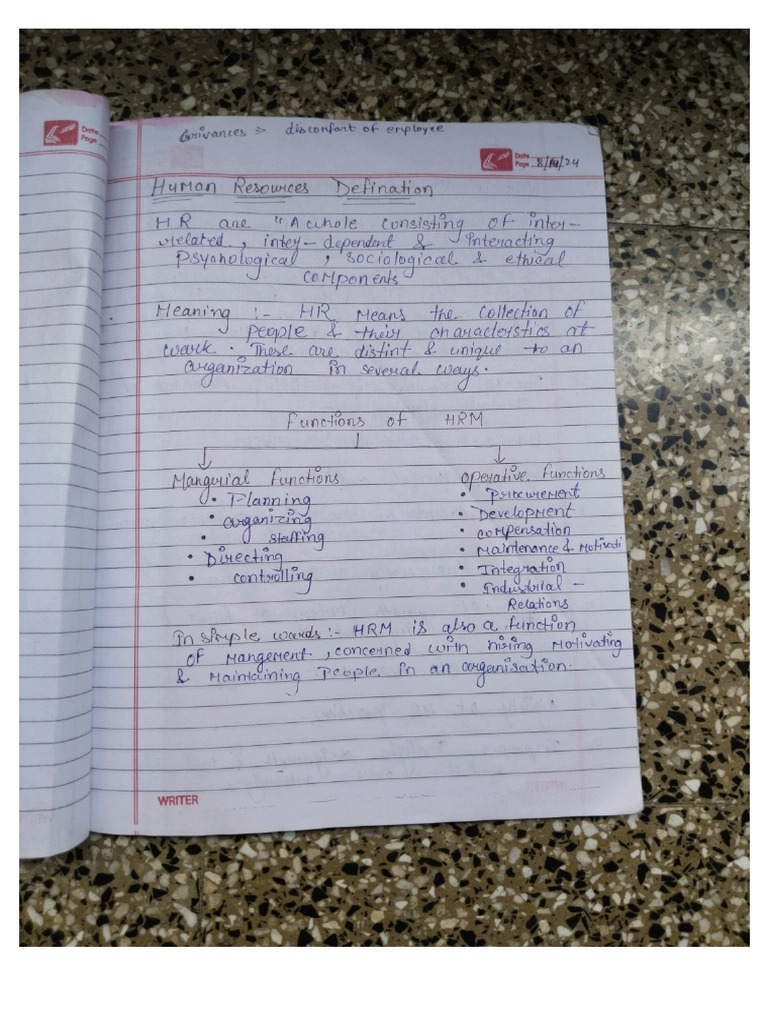 Date
Page
Grivances => discomfort of employee
Date
Page 8/10/24
Human Resources Defination
HR are "A whole consisting of inter-
related, inter-dependent & Interacting
Psychological, sociological & ethical
components
Meaning :- HR Means the collection of
people & their characterstics at
work. These are distint & unique to an
organization in several ways.
Functions of HRM
Mangerial functions
• Planning
• organizing
• staffing
• Directing
• controlling
operative functions
• Procurement
• Development
• compensation
• Maintenance & Motivati
• Integration
• Industrial -
Relations
In simple words:- HRM is also a function
of Mangement, concerned with hiring Motivating
& Maintaining People in an organisation.
WRITER